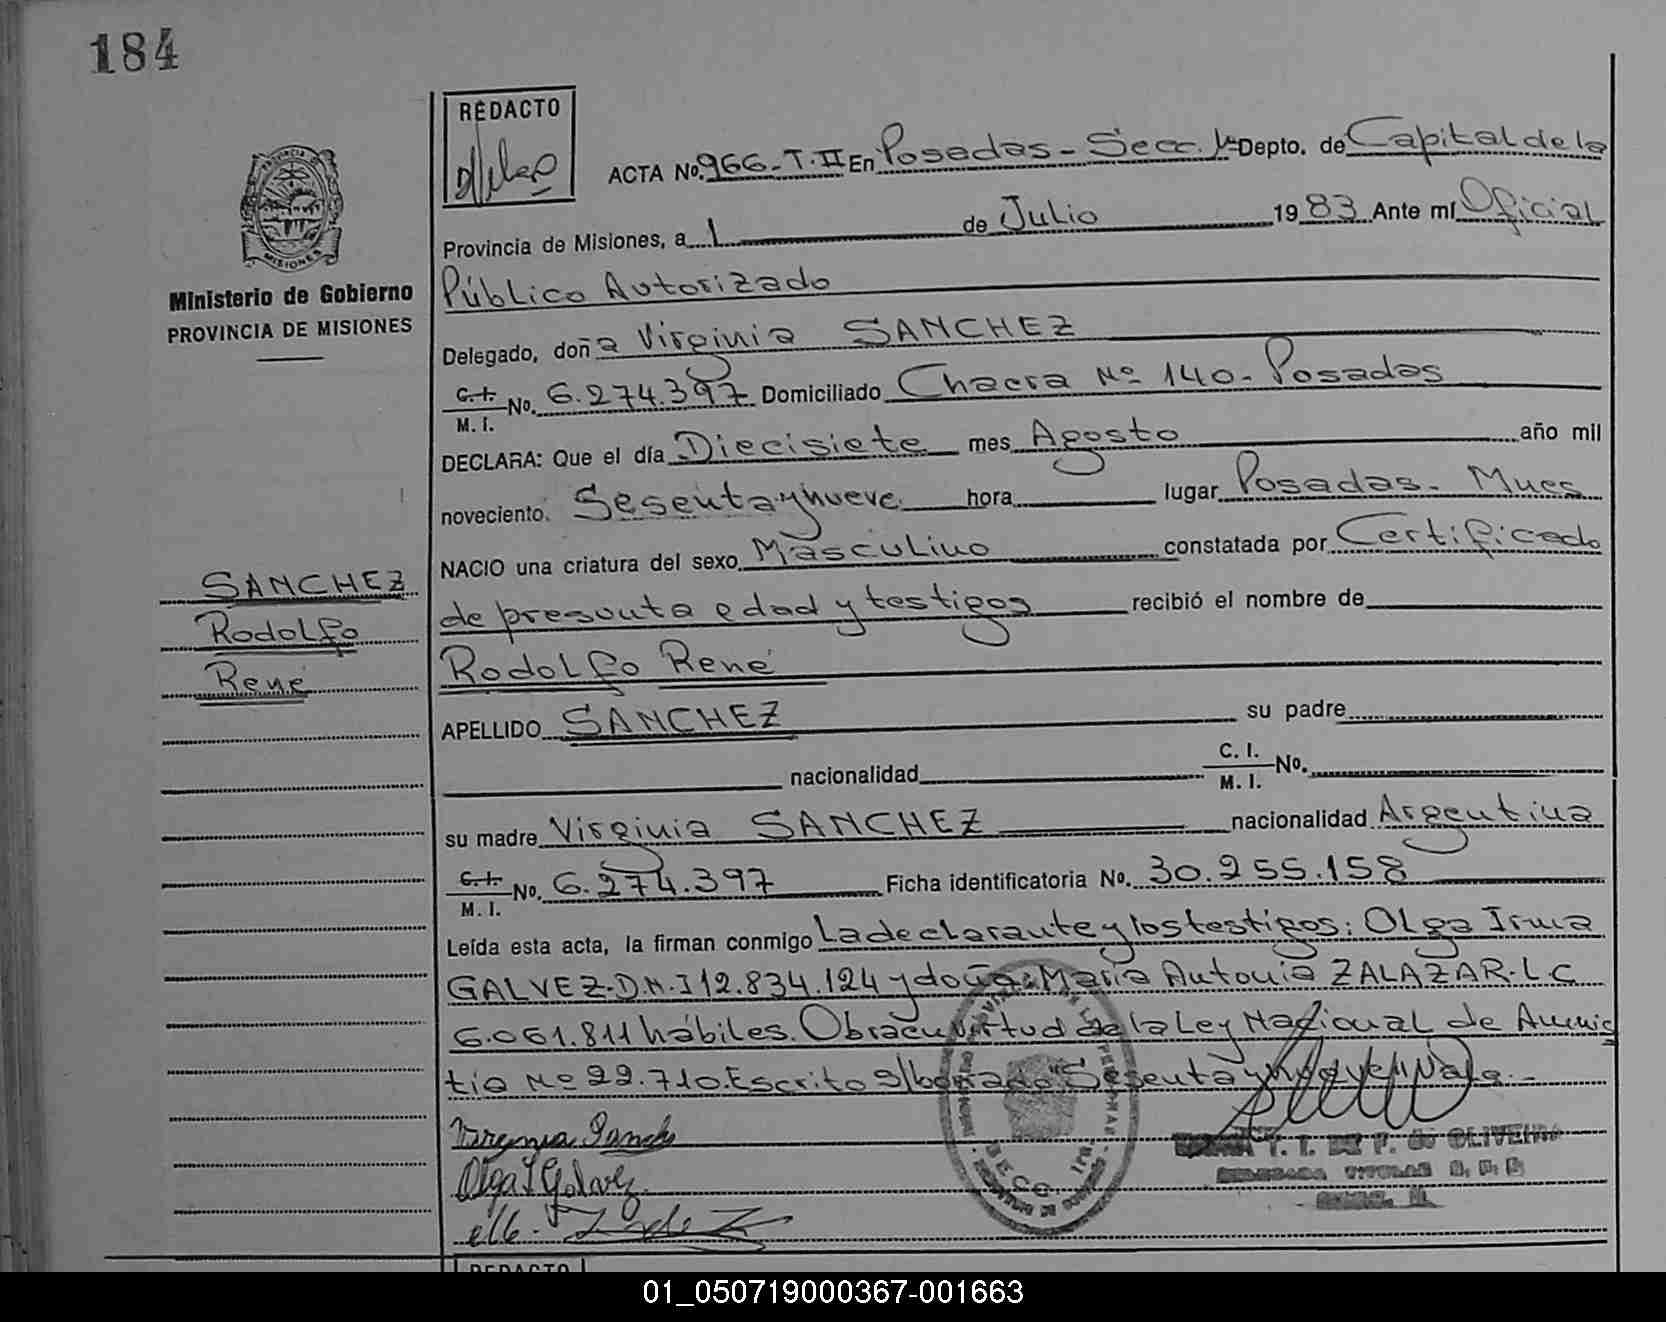 184
REDACTO
ACTA No. 966-T.II En Posadas - Secc. 1ª Depto. de Capital de la
Provincia de Misiones, a 1 de Julio 1983 Ante mí Oficial
PROVINCIA DE MISIONES
Ministerio de Gobierno
PROVINCIA DE MISIONES
Público Autorizado
Delegado, doña Virginia SANCHEZ
C.I. M.I. No. 6.274.397 Domiciliado Chacra Nº 140 - Posadas
DECLARA: Que el día Diecisiete mes Agosto año mil
noveciento. Sesenta y nueve hora lugar Posadas - Mnes
NACIO una criatura del sexo Masculino constatada por Certificado
de presunta edad y testigos recibió el nombre de
Rodolfo René
SANCHEZ
Rodolfo
René
APELLIDO SANCHEZ su padre
nacionalidad C. I. M. I. No.
su madre Virginia SANCHEZ nacionalidad Argentina
C.I. M.I. No. 6.274.397 Ficha identificatoria No. 30.255.158
Leída esta acta, la firman conmigo La declarante y los testigos: Olga Irma
GALVEZ-D.N.I 12.834.124 y doña: María Antonia ZALAZAR-L.C
6.061.811 hábiles. Obra en virtud de la Ley Nacional de Amnis
tia Nº 22.710. Escrito s/borrado "Sesenta y nueve" Vale.-
Virginia Sanchez
Olga I Galvez
OLIVEIRA
REDACTO
01_050719000367-001663